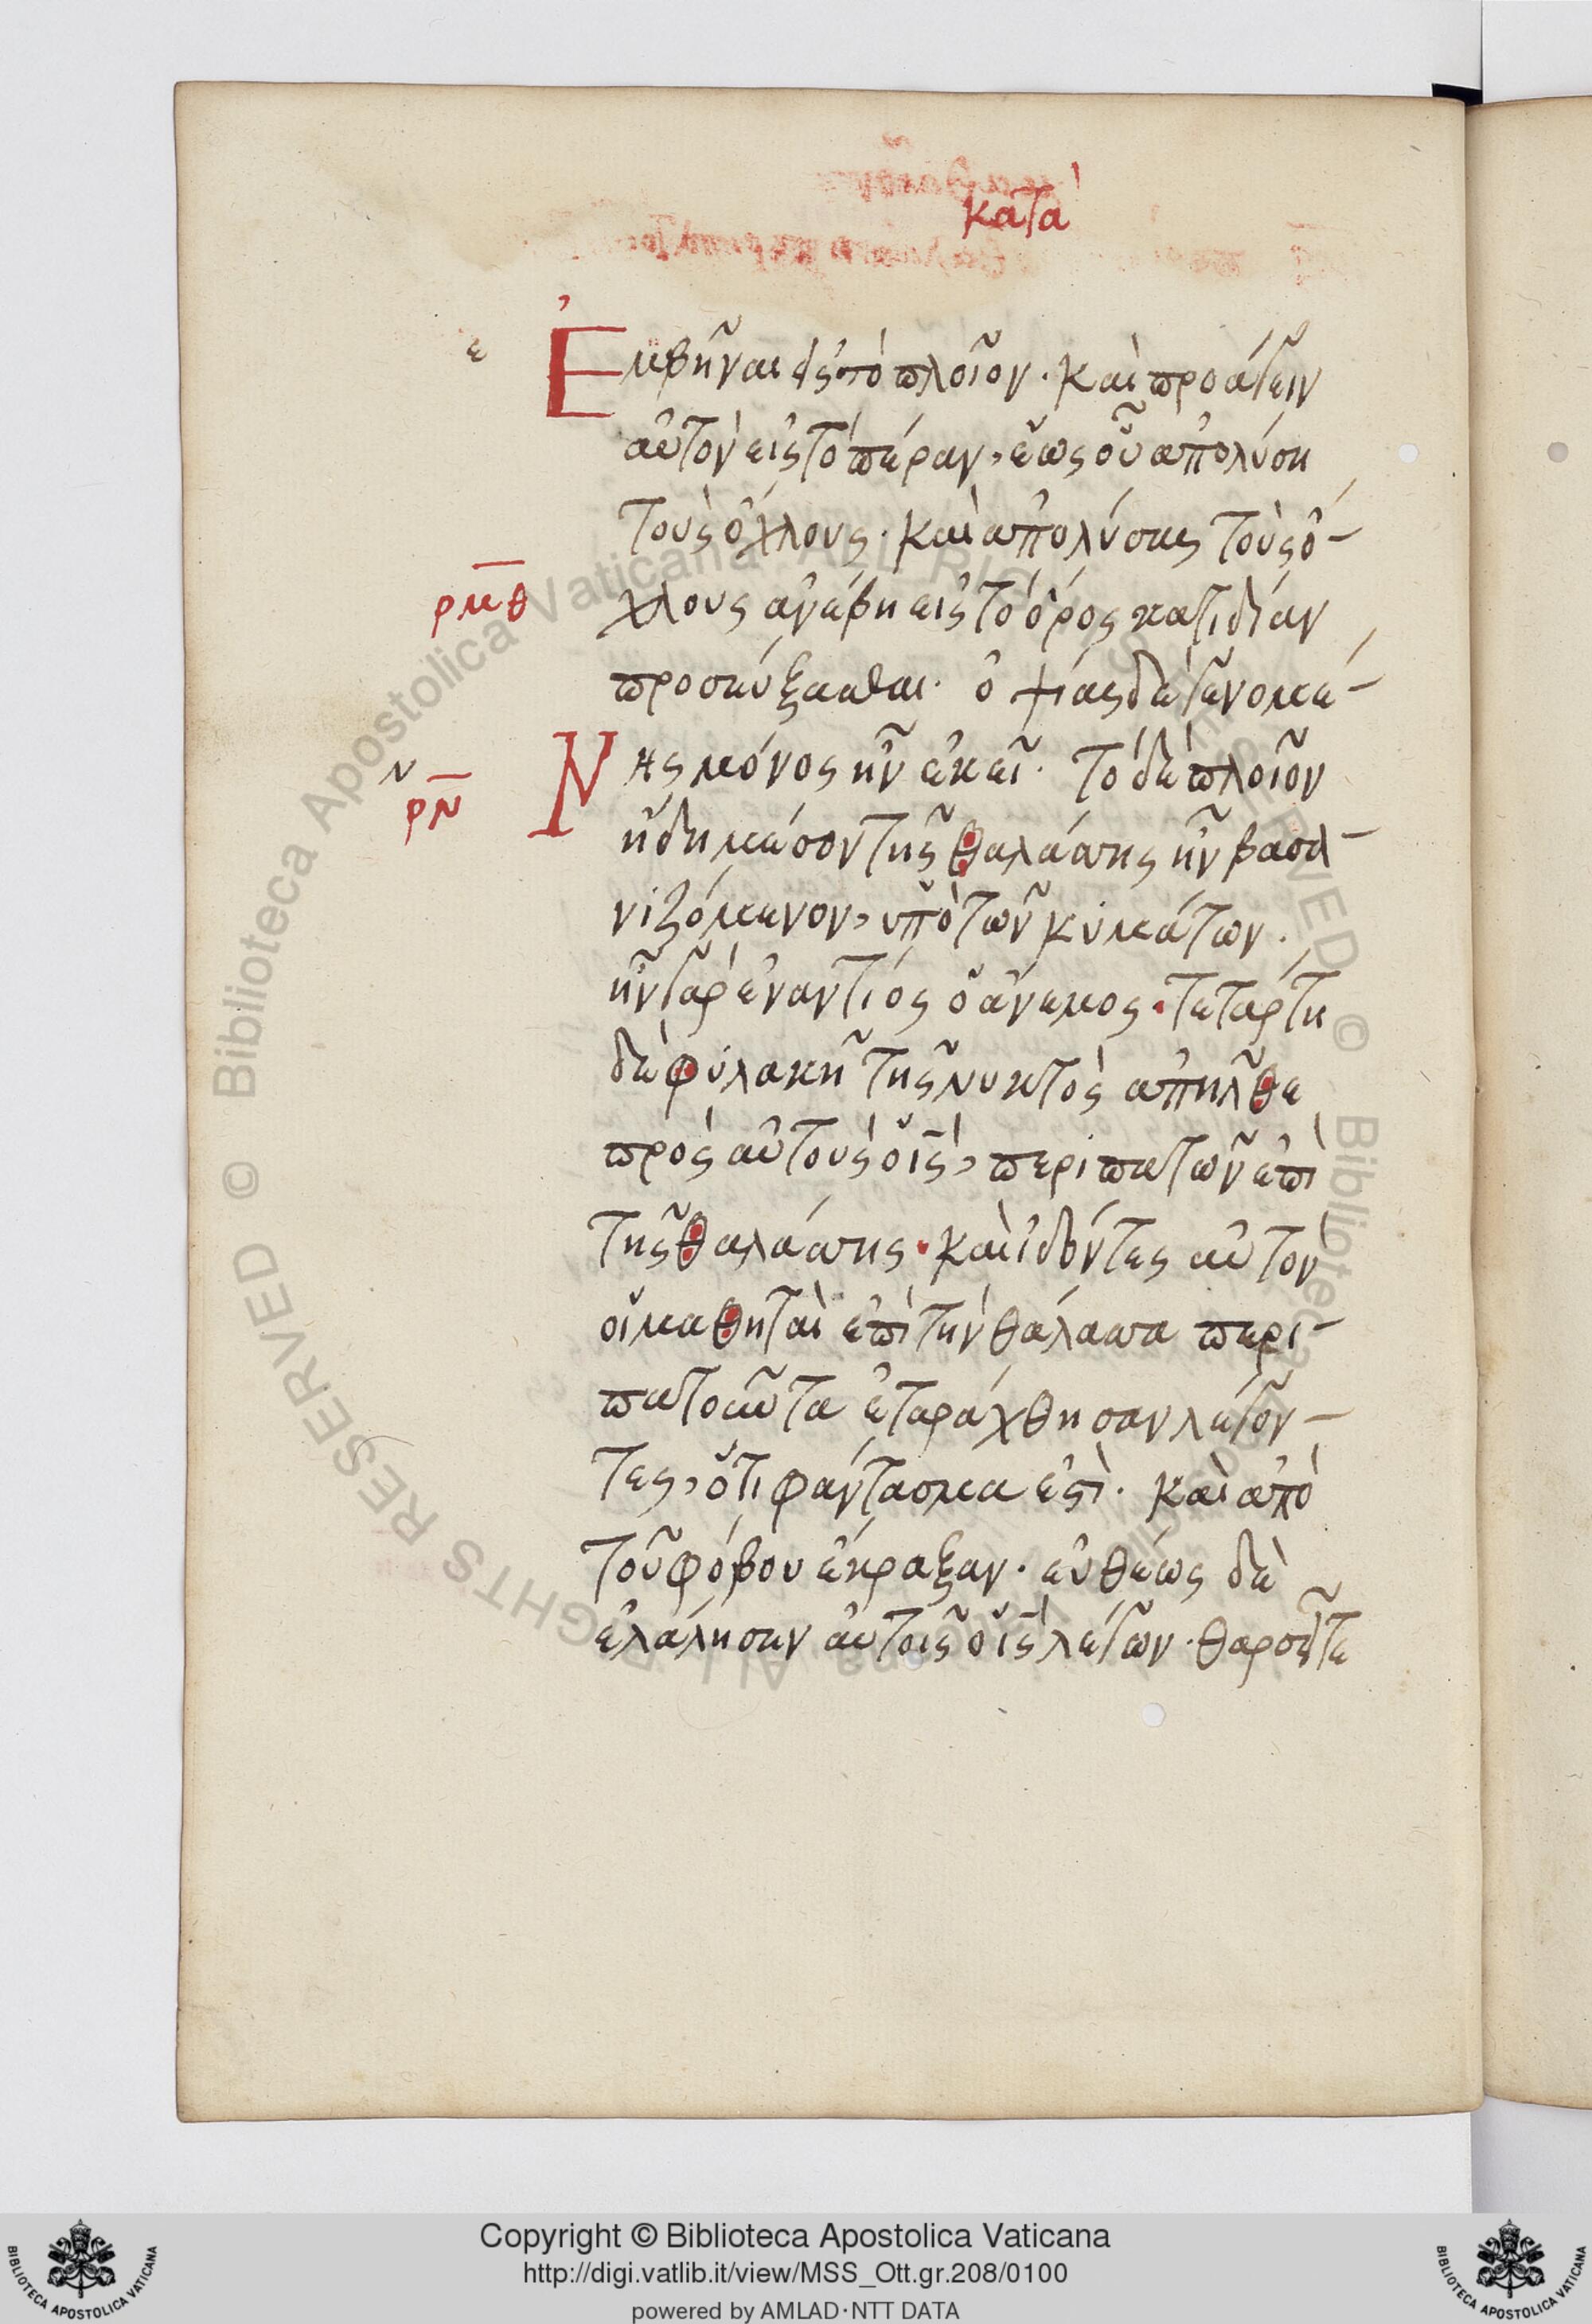 κατὰ
ε
Ἐμβῆναι εἰς τὸ πλοῖον· καὶ προάγειν
αὐτὸν εἰς τὸ πέραν, ἕως οὗ ἀπολύση
τοὺς ὄχλους· καὶ ἀπολύσας τοὺς ὄ-
ρμθ
χλους ἀνέβη εἰς τὸ ὄρος κατιδίαν
προσεύξασθαι· ὀψίας δὲ γενομέ-
ν
ρν
Νης μόνος ἦν ἐκεῖ· τὸ δὲ πλοῖον
ἤδη μέσον τῆς θαλάσσης ἦν βασα-
νιζόμενον, ὑπὸ τῶν κυμάτων·
ἦν γὰρ ἐναντίος ὁ ἄνεμος· τετάρτη
δὲ φυλακῆ τῆς νυκτὸς ἀπῆλθε
πρὸς αὐτοὺς ὁ ις, περιπατῶν ἐπὶ
τῆς θαλάσσης· καὶ ἰδόντες αὐτὸν
οἱ μαθηταὶ ἐπὶ τὴν θάλασσα περι-
πατοῦντα ἐταράχθησαν λέγον-
τες, ὅτι φάντασμα ἐστὶ· καὶ ἀπὸ
τοῦ φόβου ἔκραξαν· εὐθέως δὲ
ἐλάλησεν αὐτοῖς ὁ ις λέγων· θαρσεῖτε
Biblioteca Apostolica Vaticana ALL RIGHTS RESERVED ©
Copyright © Biblioteca Apostolica Vaticana
http://digi.vatlib.it/view/MSS_Ott.gr.208/0100
powered by AMLAD·NTT DATA
BIBLIOTECA APOSTOLICA VATICANA
BIBLIOTECA APOSTOLICA VATICANA